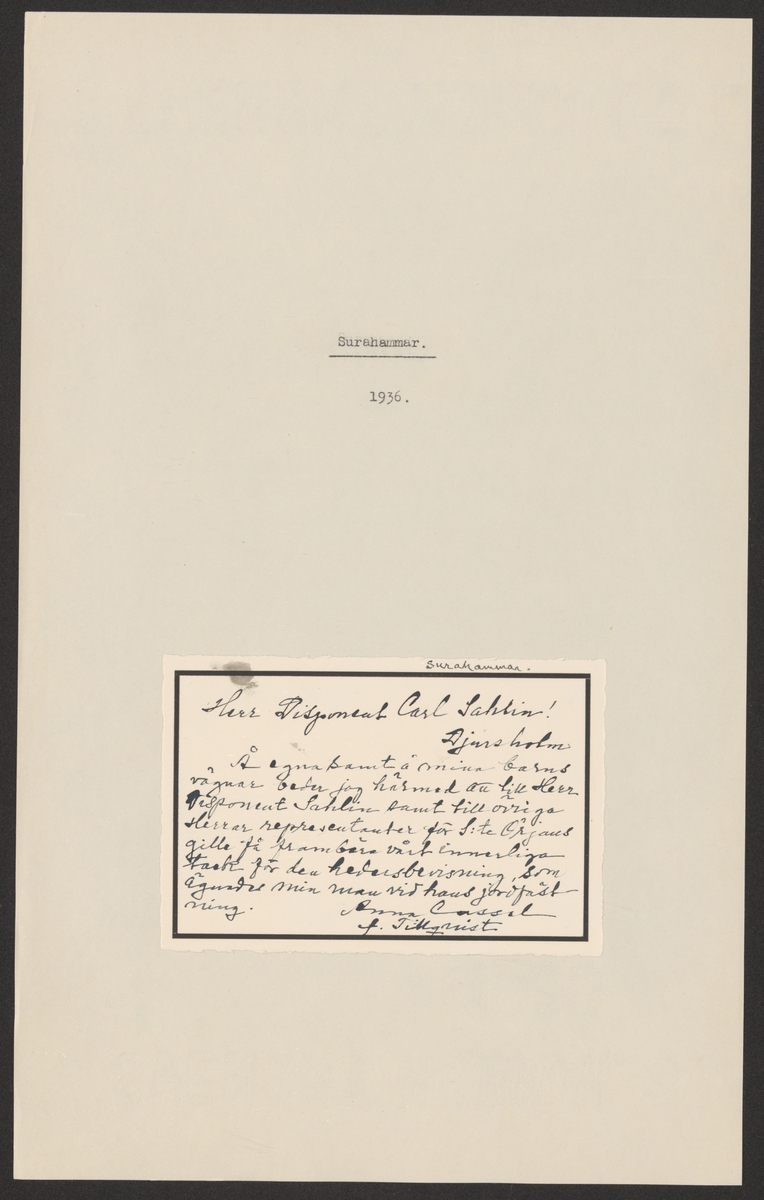 Surahammar.
1936.
Surahammar.
Herr Disponent Carl Sahlin!
Djursholm
Å egna samt å mina barns
vägnar beder jag härmed att till Herr
Disponent Sahlin samt till övriga
Herrar representanter för S:te Örjans
gille få frambära vårt innerliga
tack för den hedersbevisning, som
ägnades min man vid hans jordfäst-
ning.
Anna Cassel
f. Tillqvist